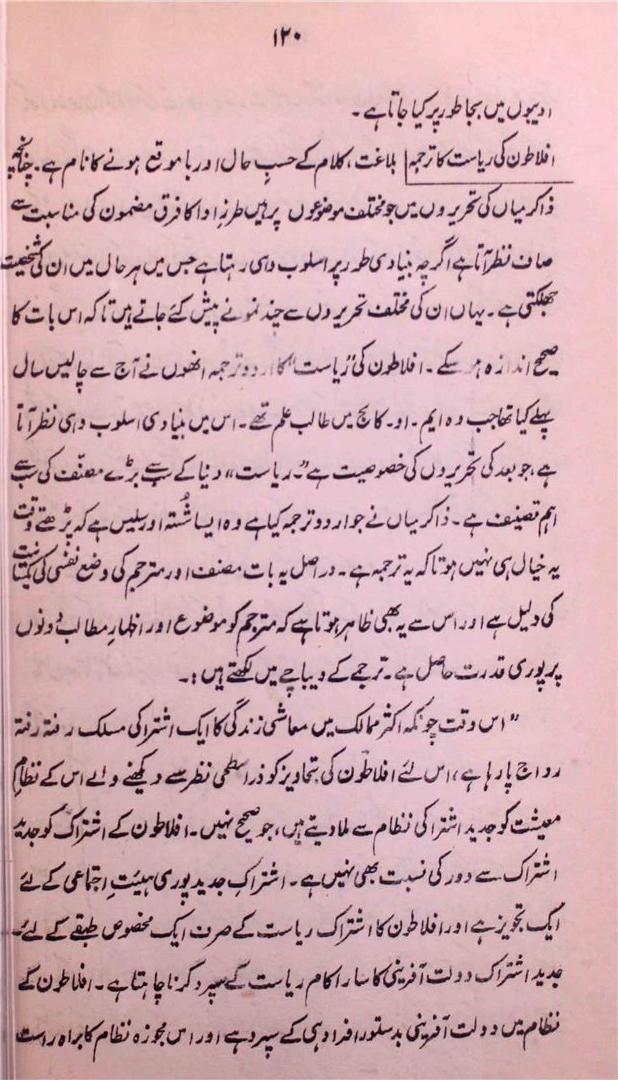 ۱۲۰
ادیبوں میں بجا طور پر کیا جاتا ہے۔
افلاطون کی ریاست کا ترجمہ بلاغت، کلام کے حسبِ حال اور با موقع ہونے کا نام ہے۔ چنانچہ
ذاکر میاں کی تحریروں میں جو مختلف موضوعوں پر ہیں طرزِ ادا کا فرق مضمون کی مناسبت سے
صاف نظر آتا ہے اگرچہ بنیادی طور پر اسلوب وہی رہتا ہے جس میں ہر حال میں ان کی شخصیت
جھلکتی ہے۔ یہاں ان کی مختلف تحریروں سے چند نمونے پیش کئے جاتے ہیں تاکہ اس بات کا
صحیح اندازہ ہو سکے۔ افلاطون کی "ریاست" کا اردو ترجمہ انھوں نے آج سے چالیس سال
پہلے کیا تھا جب وہ ایم۔ او۔ کالج میں طالب علم تھے۔ اس میں بنیادی اسلوب وہی نظر آتا
ہے، جو بعد کی تحریروں کی خصوصیت ہے۔ "ریاست" دنیا کے سب سے بڑے مصنّف کی سب سے
اہم تصنیف ہے۔ ذاکر میاں نے جو اردو ترجمہ کیا ہے وہ ایسا شُستہ اور سلیس ہے کہ پڑھتے وقت
یہ خیال ہی نہیں ہوتا کہ یہ ترجمہ ہے۔ دراصل یہ بات مصنف اور مترجم کی وضع نفسی کی یکسانیت
کی دلیل ہے اور اس سے یہ بھی ظاہر ہوتا ہے کہ مترجم کو موضوع اور اظہارِ مطالب دونوں
پر پوری قدرت حاصل ہے۔ ترجمے کے دیباچے میں لکھتے ہیں:۔
"اس وقت چونکہ اکثر ممالک میں معاشی زندگی کا ایک اشتراکی مسلک رفتہ رفتہ
رواج پا رہا ہے، اس لئے افلاطون کی تجاویز کو ذرا سطحی نظر سے دیکھنے والے اس کے نظامِ
معیشت کو جدید اشتراکی نظام سے ملا دیتے ہیں، جو صحیح نہیں۔ افلاطون کے اشتراک کو جدید
اشتراک سے دور کی نسبت بھی نہیں ہے۔ اشتراکِ جدید پوری ہیئتِ اجتماعی کے لئے
ایک تجویز ہے اور افلاطون کا اشتراک ریاست کے صرف ایک مخصوص طبقے کے لئے۔
جدید اشتراک دولت آفرینی کا سارا کام ریاست کے سپرد کرنا چاہتا ہے۔ افلاطون کے
نظام میں دولت آفرینی بدستور افراد ہی کے سپرد ہے اور اس مجوزہ نظام کا براہ راست